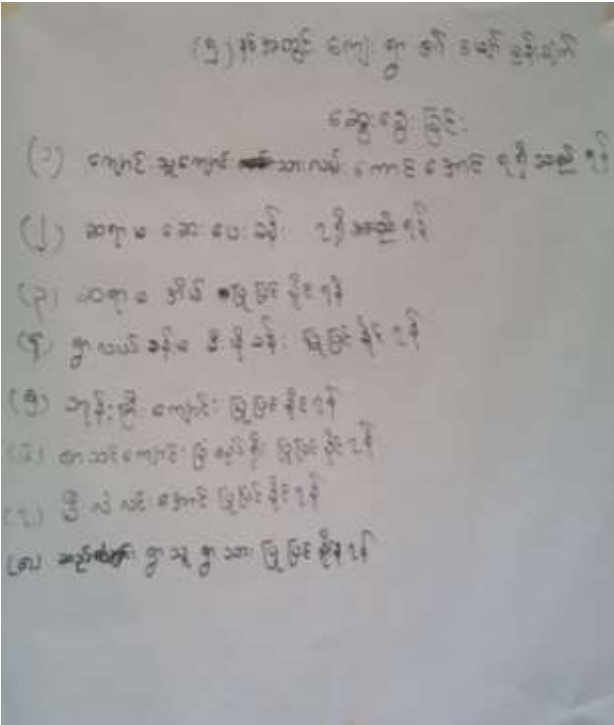 (၅) နှစ်အတွင် ကျေးရွာ ဇာတ် မျှော် မှန်းချက်
ဆွေးနွေး ခြင်း
(၁) ကျောင်းသူကျောင် သားလမ်း ကောင်းအောင် ရရှိ သည့် ရန်
(၂) ဆရာမ ဆေးပေးခန်း ရရှိ သည့် ရန်
(၃) ဆရာမ အိမ် ပြုပြင် နိုင်ရန်
(၄) ရွာလယ်ခန်းမ မီးဖိုခန်း ပြုပြင် နိုင် ရန်
(၅) ဘုန်းကြီး ကျောင်း ပြုပြင်နိုင်ရန်
(၆) စာသင်ကျောင်း ခြံစည်းရိုး ပြုပြင် နိုင်ရန်
(၇) မီးလင်းအောင် ပြုပြင်နိုင်ရန်
(၈) ရွာသူ ရွာသား ပြုပြင် နိုင်ရန်